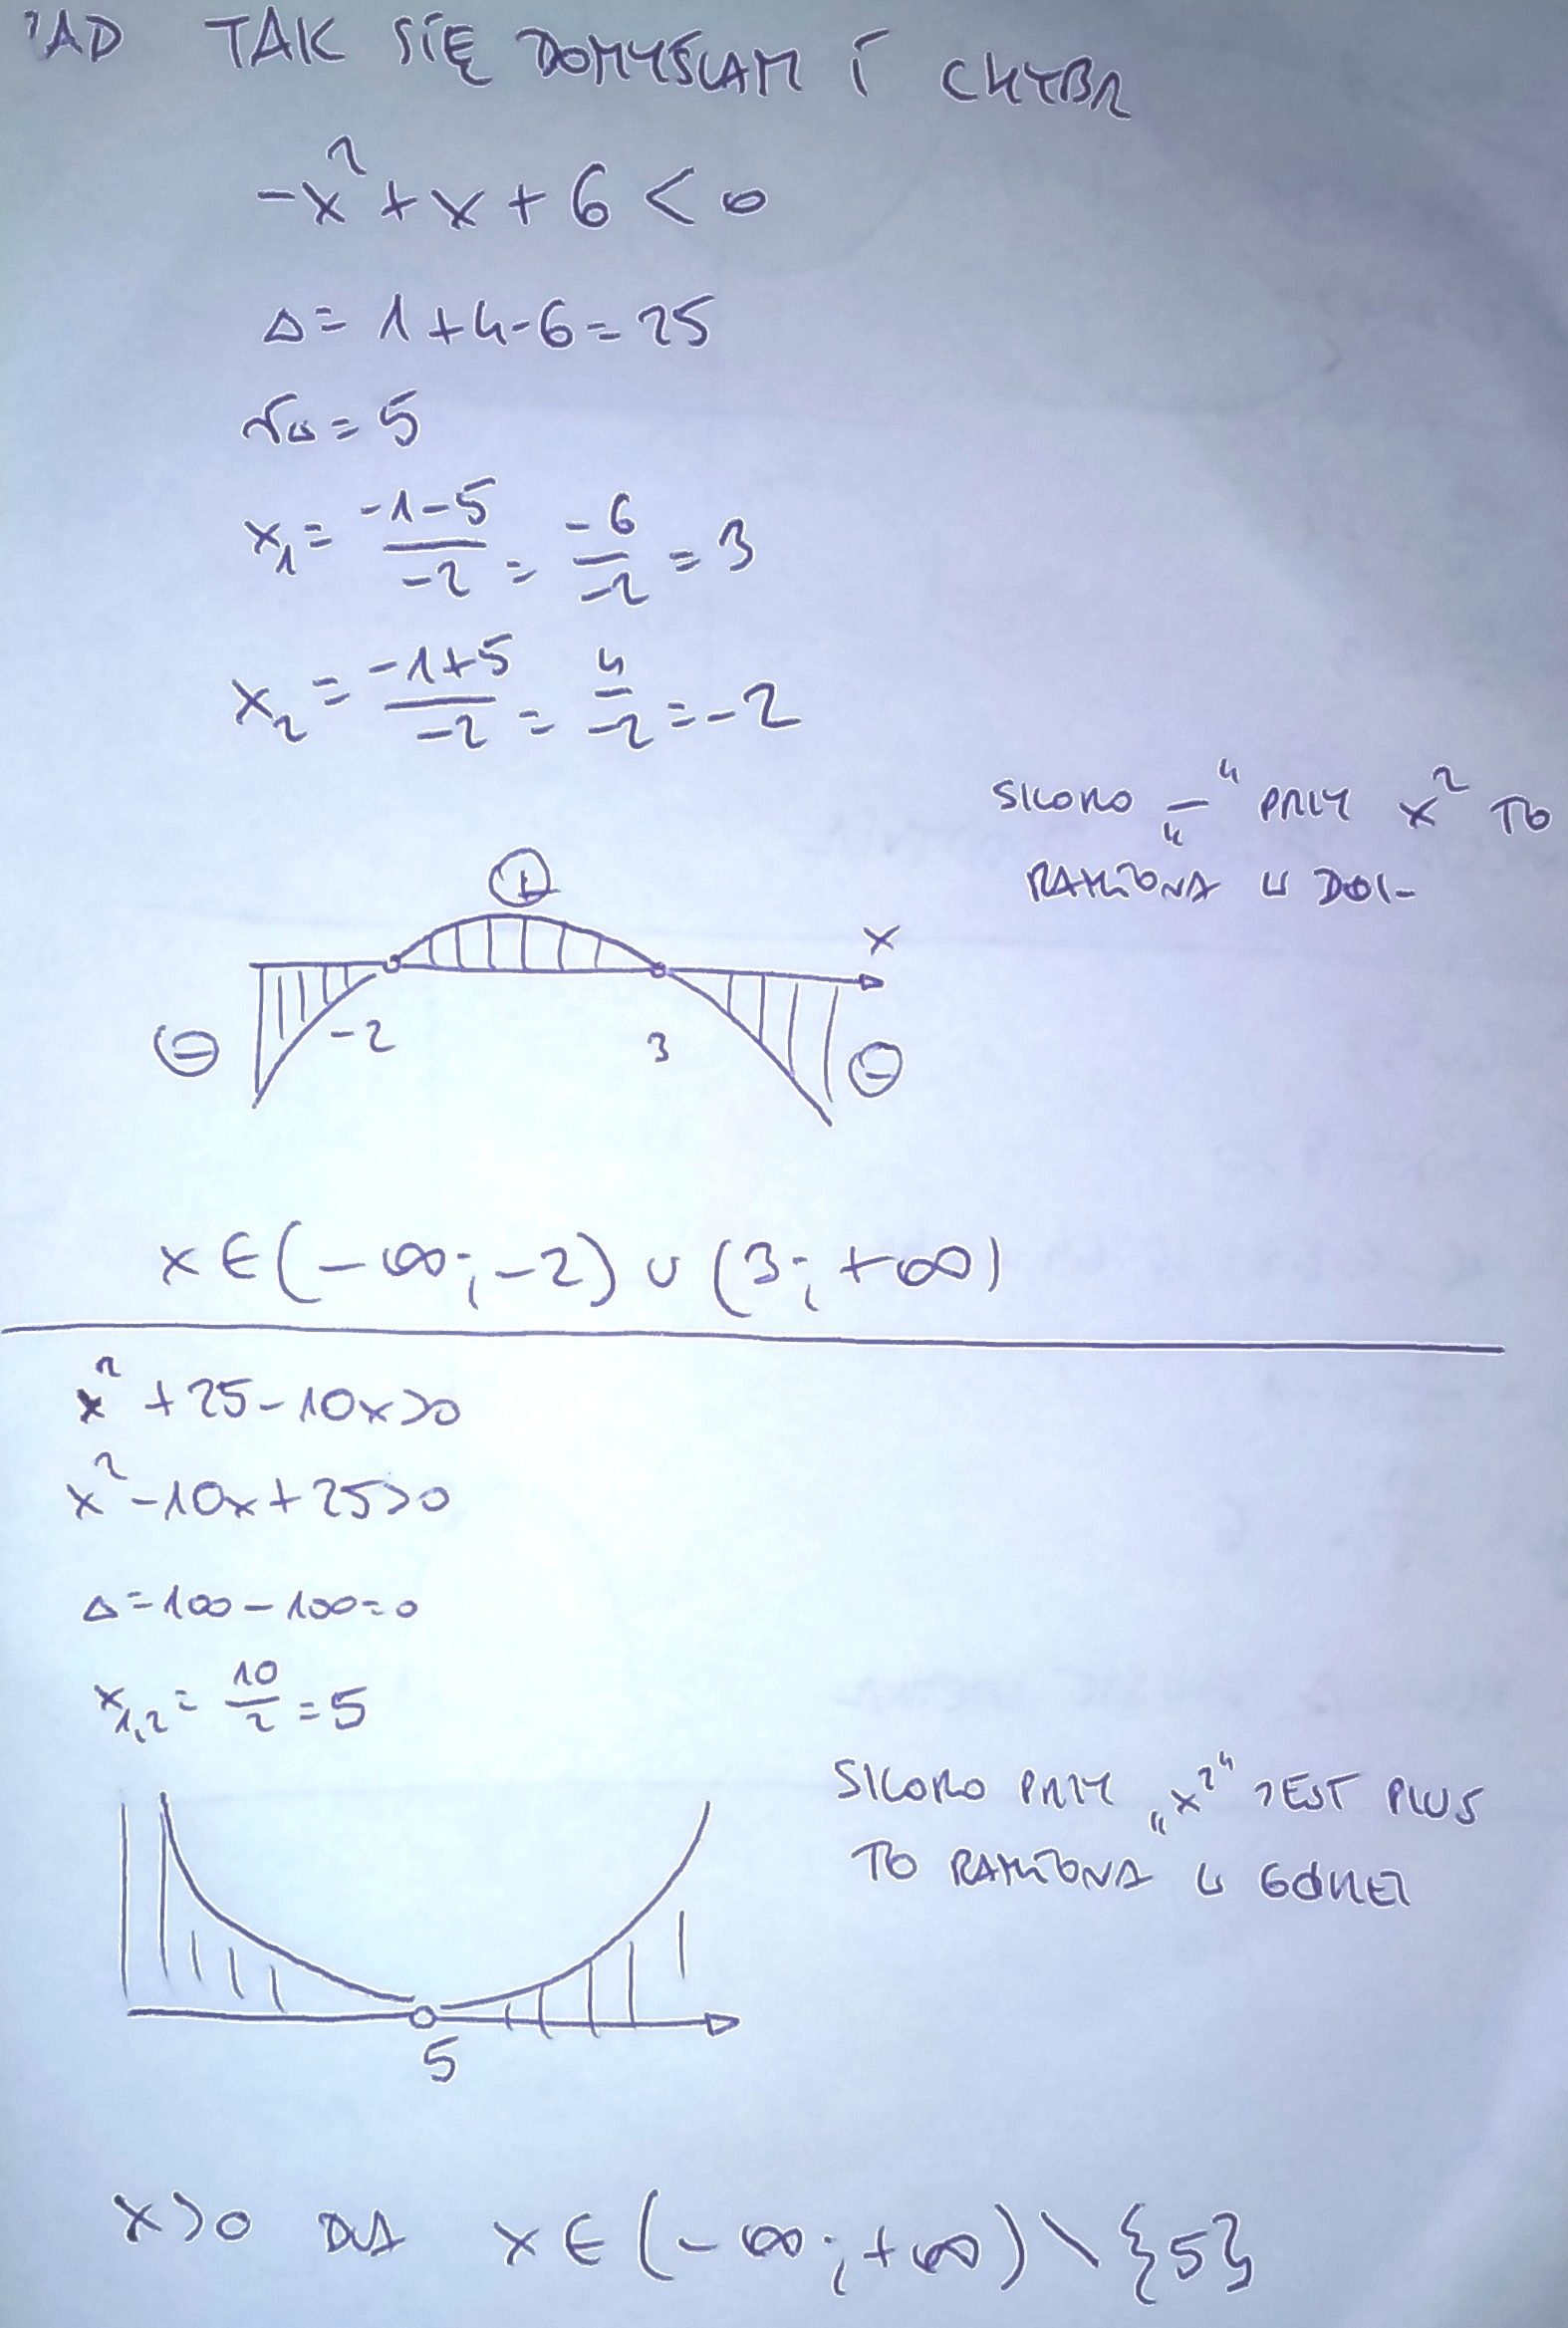 TAK SIĘ DOMYŚLAM I CHYBA
-x² + x + 6 < 0
Δ = 1 + 4·6 = 25
√Δ = 5
x₁ = (-1-5)/(-2) = (-6)/(-2) = 3
x₂ = (-1+5)/(-2) = 4/(-2) = -2
SKORO „-" PRZY x² TO
RAMIONA W DÓŁ
+
x
-2
3
-
-
x ∈ (-∞; -2) ∪ (3; +∞)
x² + 25 - 10x > 0
x² - 10x + 25 > 0
Δ = 100 - 100 = 0
x₁,₂ = 10/2 = 5
SKORO PRZY „x²" JEST PLUS
TO RAMIONA W GÓRĘ
5
x > 0 DLA x ∈ (-∞; +∞) \ {5}